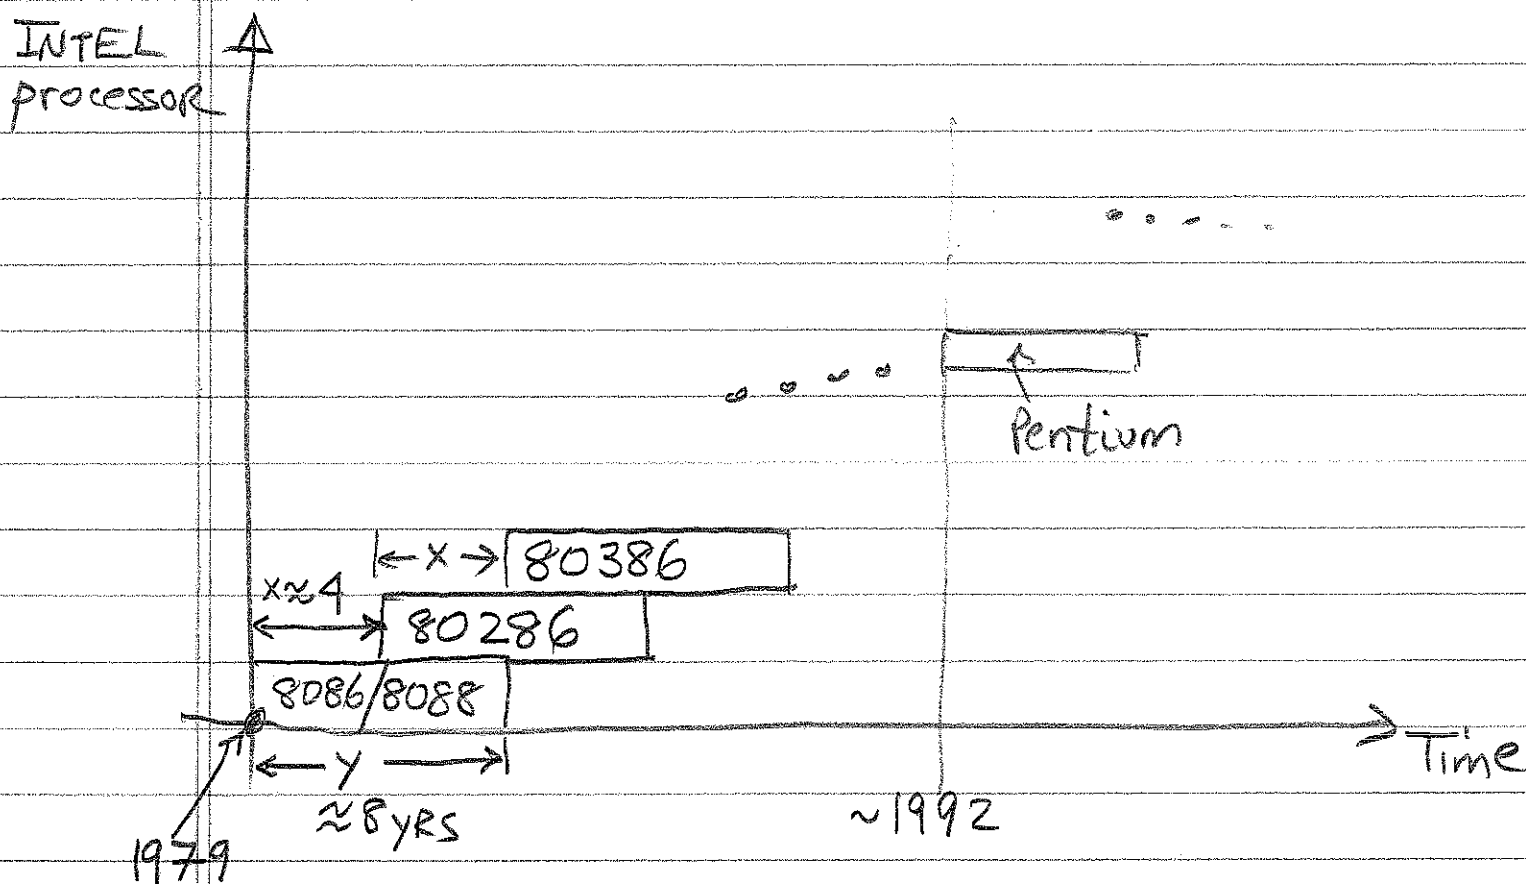 INTEL
processor
Pentium
X
80386
x≈4
80286
8086/8088
Time
Y
≈8 YRS
~1992
1979